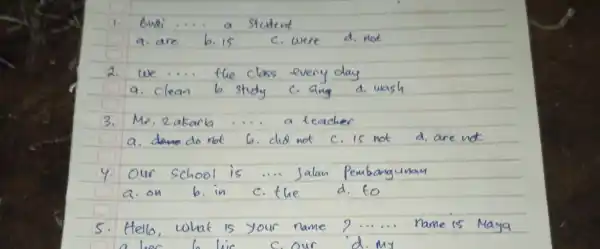 1. Budi .... a student
a. are b. is c. were d. not
2. We .... the class every day
a. clean b. study c. sing d. wash
3. Mr. Zakaria .... a teacher
a. do not b. did not c. is not d. are not
4. Our school is .... Jalan Pembangunan
a. on b. in c. the d. to
5. Hello, what is your name ? ...... name is Maya
a. her b. his c. our d. My